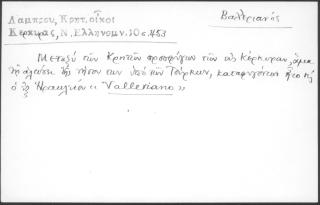 Λαμπρου, Κρητ. οἶκοι
Κερκυρας, Ν. Ελληνομν. 10 σ. 453
Βαλεριανός
Μεταξύ τῶν Κρητῶν προσφύγων τῶν εἰς Κέρκυραν, ἅμα
τῇ ἁλώσει τῆς νήσου των ὑπό τῶν Τούρκων, καταφυγόντων ἦτο κ'
ὁ ἐξ Ἡρακλείου « Valleriano »